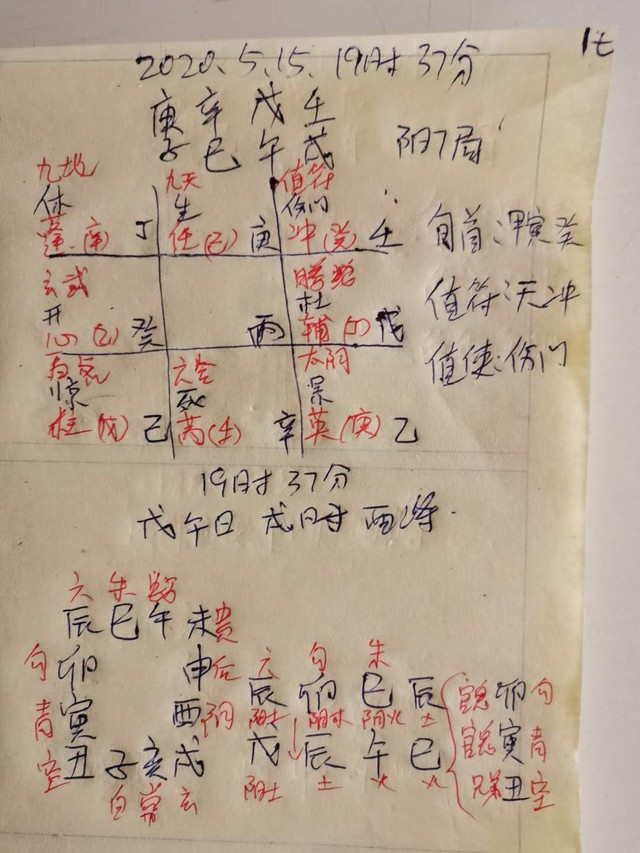 2020.5.15.19时37分
庚辛戊壬
子巳午戌
九地 九天 值符
休 生 伤门
蓬(辛) 丁 任(己) 庚 冲(癸) 壬
旬首:甲寅癸
玄武 螣蛇
开 丙 杜
心(乙) 癸 辅(丁) 戊
值符:天冲
值使:伤门
白虎 六合 太阴
惊 死 景
柱(戊) 己 芮(壬) 辛 英(庚) 乙
19时37分
戊午日 戌时 酉将
六 朱
辰巳午未贵
勾卯 申后
青寅 酉阴
空丑子亥戌
白常玄
六 勾 朱
辰 卯 巳 辰
阴土 阴木 阴火 土
戊 辰 午 巳
阴土 土 火 火
官鬼卯勾
官鬼寅青
兄弟丑空